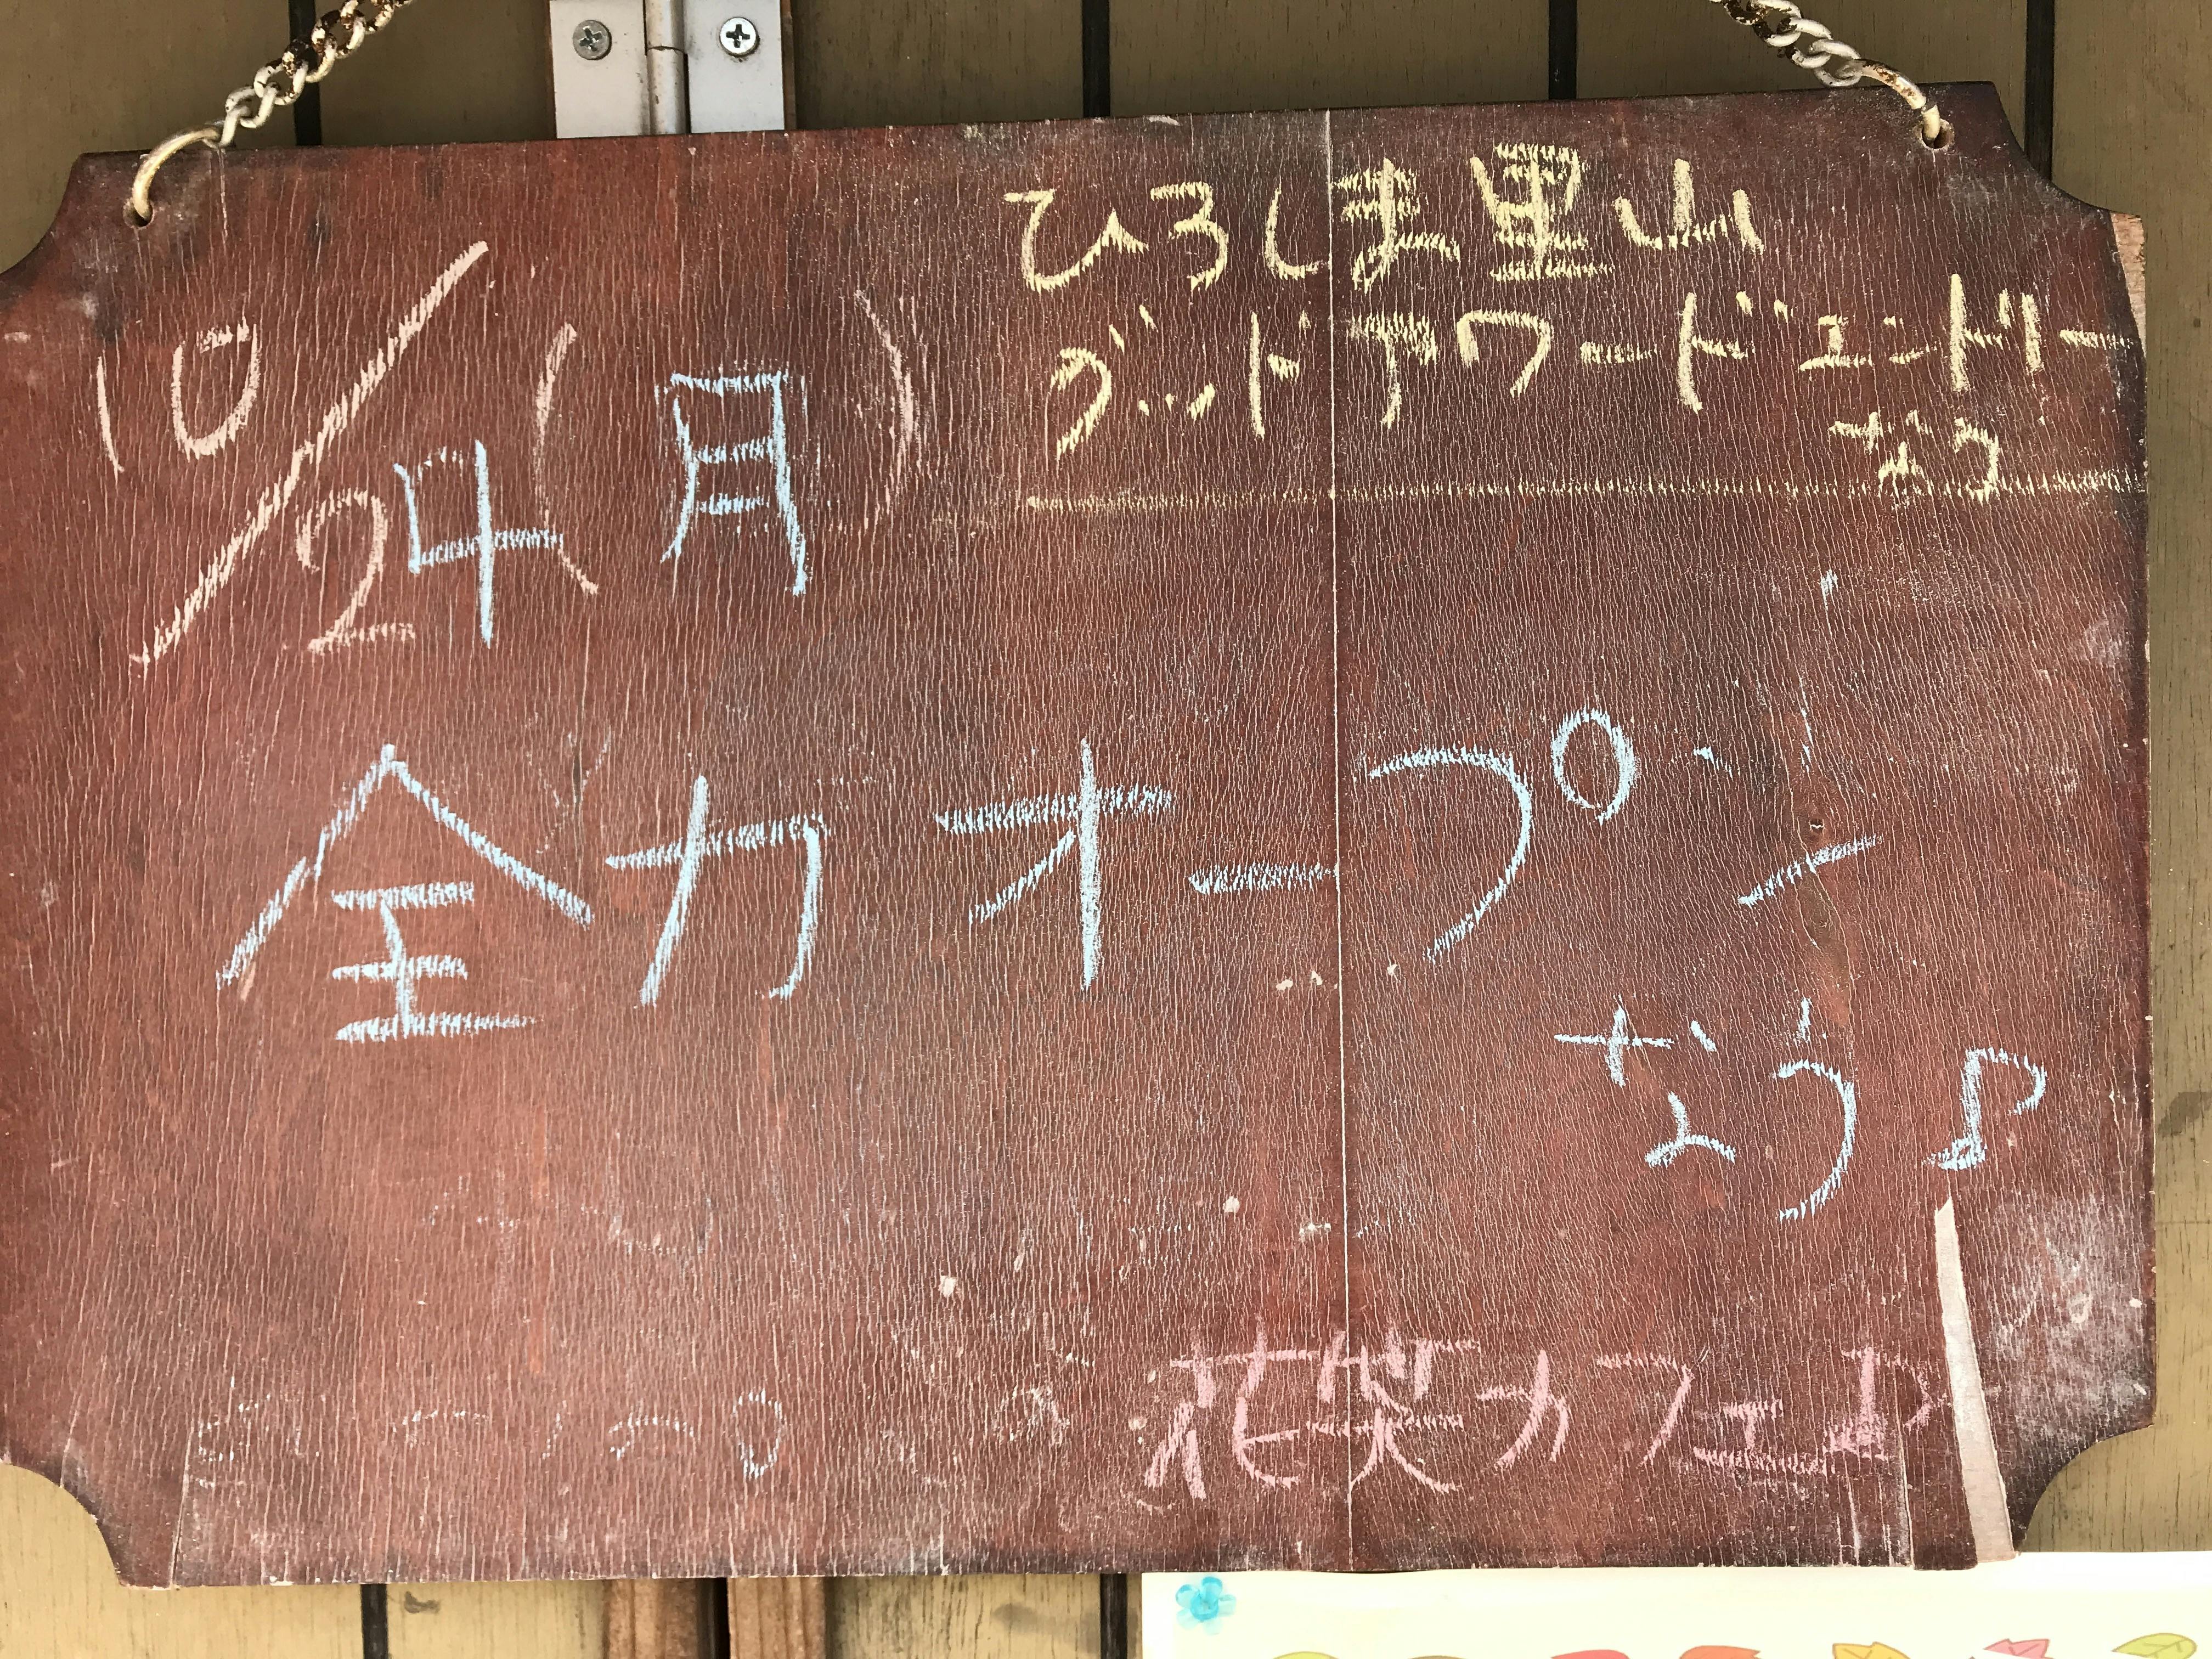 ひろしま里山
グッドアワードエントリー
なう
10/24(月)
全力オープン
なう♪
花笑カフェ